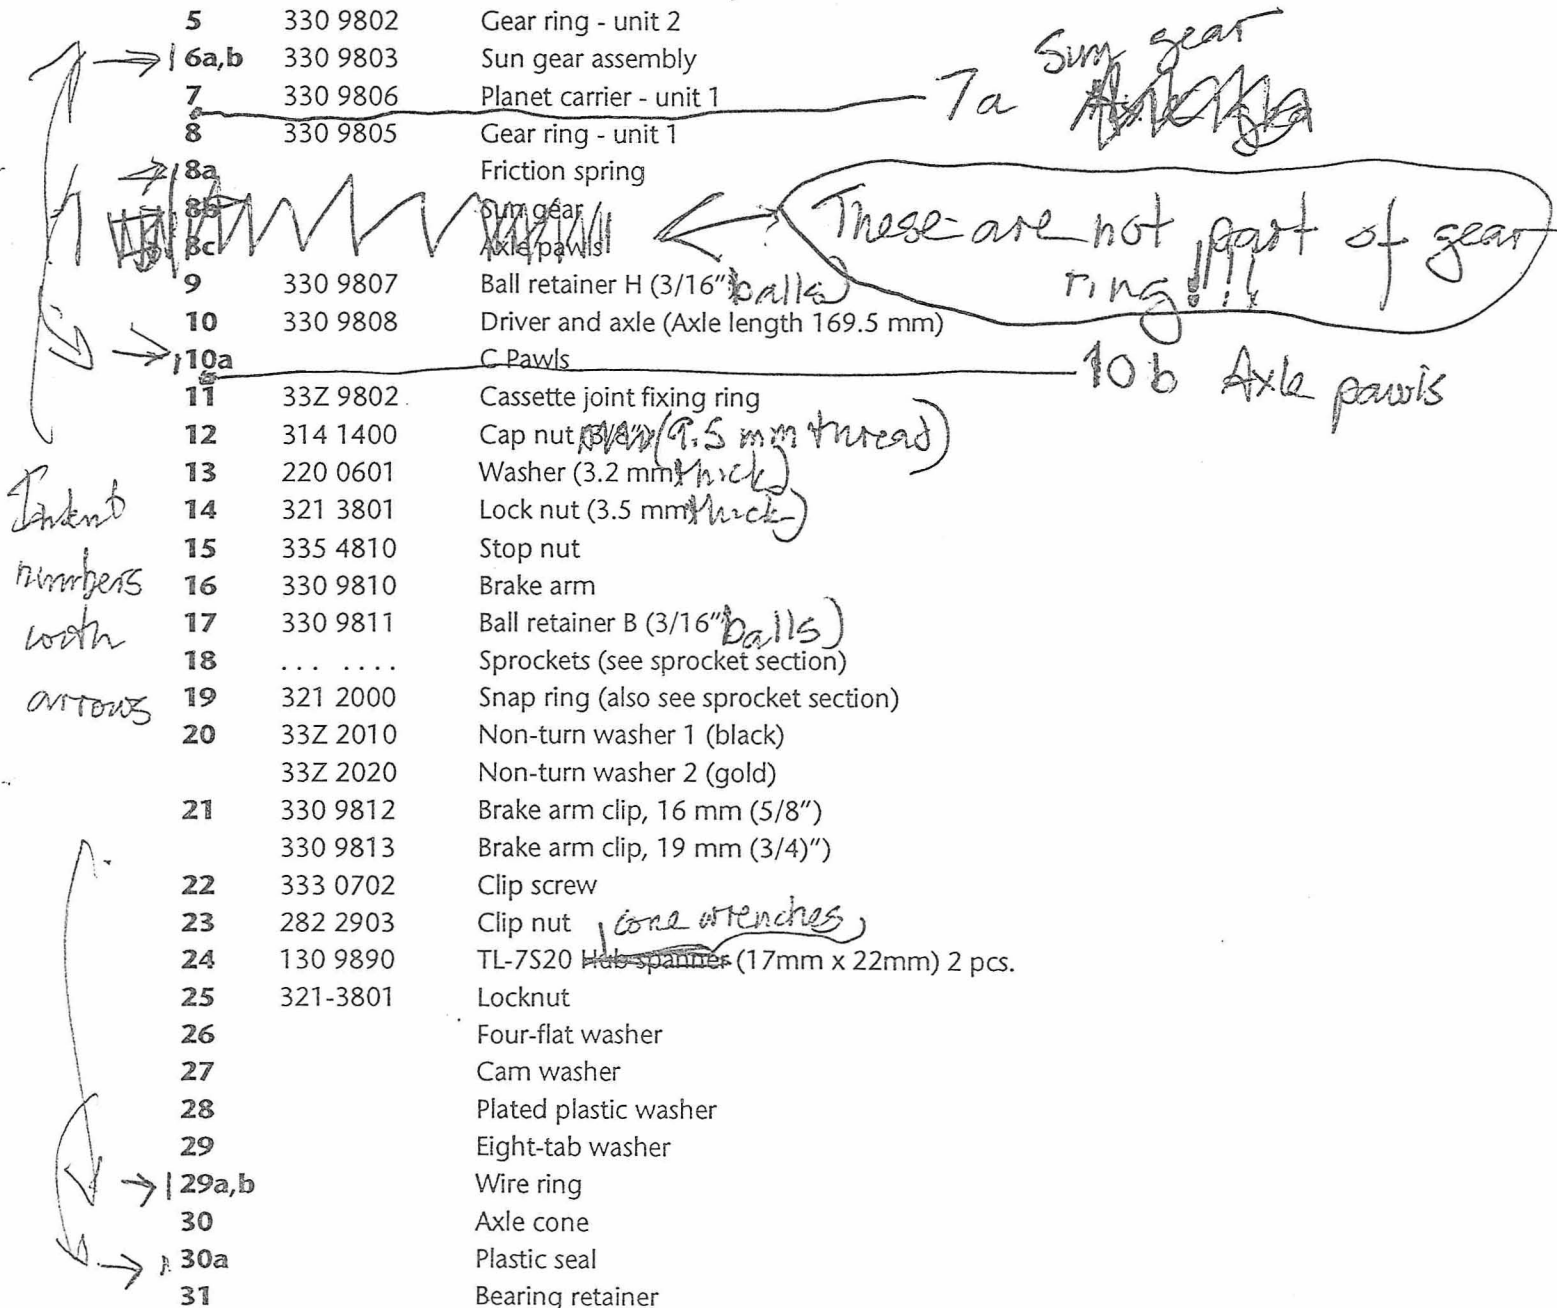 5 330 9802 Gear ring - unit 2
Sun gear
6a,b 330 9803 Sun gear assembly
7 330 9806 Planet carrier - unit 1 7a
8 330 9805 Gear ring - unit 1
8a Friction spring
8b Sun gear
8c Axle pawls
These are not part of gear
ring!!!!
9 330 9807 Ball retainer H (3/16" balls)
10 330 9808 Driver and axle (Axle length 169.5 mm)
10a C Pawls
10b Axle pawls
11 33Z 9802 Cassette joint fixing ring
12 314 1400 Cap nut (9.5 mm thread)
13 220 0601 Washer (3.2 mm thick)
14 321 3801 Lock nut (3.5 mm thick)
15 335 4810 Stop nut
16 330 9810 Brake arm
17 330 9811 Ball retainer B (3/16" balls)
18 ... .... Sprockets (see sprocket section)
19 321 2000 Snap ring (also see sprocket section)
Indent
numbers
with
arrows
20 33Z 2010 Non-turn washer 1 (black)
33Z 2020 Non-turn washer 2 (gold)
21 330 9812 Brake arm clip, 16 mm (5/8")
330 9813 Brake arm clip, 19 mm (3/4)")
22 333 0702 Clip screw
23 282 2903 Clip nut
cone wrenches
24 130 9890 TL-7S20 Hub spanner (17mm x 22mm) 2 pcs.
25 321-3801 Locknut
26 Four-flat washer
27 Cam washer
28 Plated plastic washer
29 Eight-tab washer
29a,b Wire ring
30 Axle cone
30a Plastic seal
31 Bearing retainer